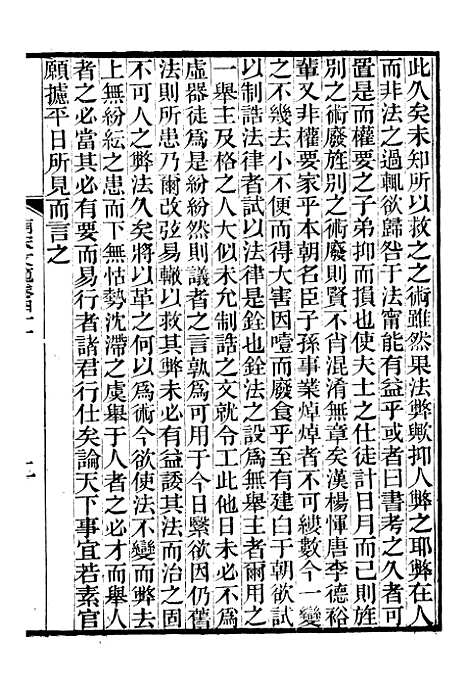 此久矣未知所以救之之術雖然果法弊歟抑人弊之耶弊在人
而非法之過輒欲歸咎于法甯能有益乎或者曰書考之久者可
置是而權要之子弟抑而損也使夫士之仕徒計日月而已則旌
別之術廢旌別之術廢則賢不肖混淆無章矣漢楊惲唐李德裕
輩又非權要家乎本朝名臣子孫事業焯焯者不可縷數今一變
之不幾去小不便而得大害因噎而廢食乎至有建白于朝欲試
以制誥法律者試以法律是銓也銓法之設爲無舉主者爾用之
一舉主及格之人大似未允制誥之文就令工此他日未必不爲
虛器徒爲是紛紛則議者之言孰可施用于今日繄欲因仍舊
法則所患乃爾改弦易轍以救其弊未必有益諉其法而治之固
不可人之弊法久矣將以革之何以爲術今欲使法不變而弊去
上無紛紜之患而下無怙勢沈滯之虞舉于人者之必才而舉人
者之必當其必有要而易行者諸君行仕矣論天下事宜若素官
願據平日所見而言之